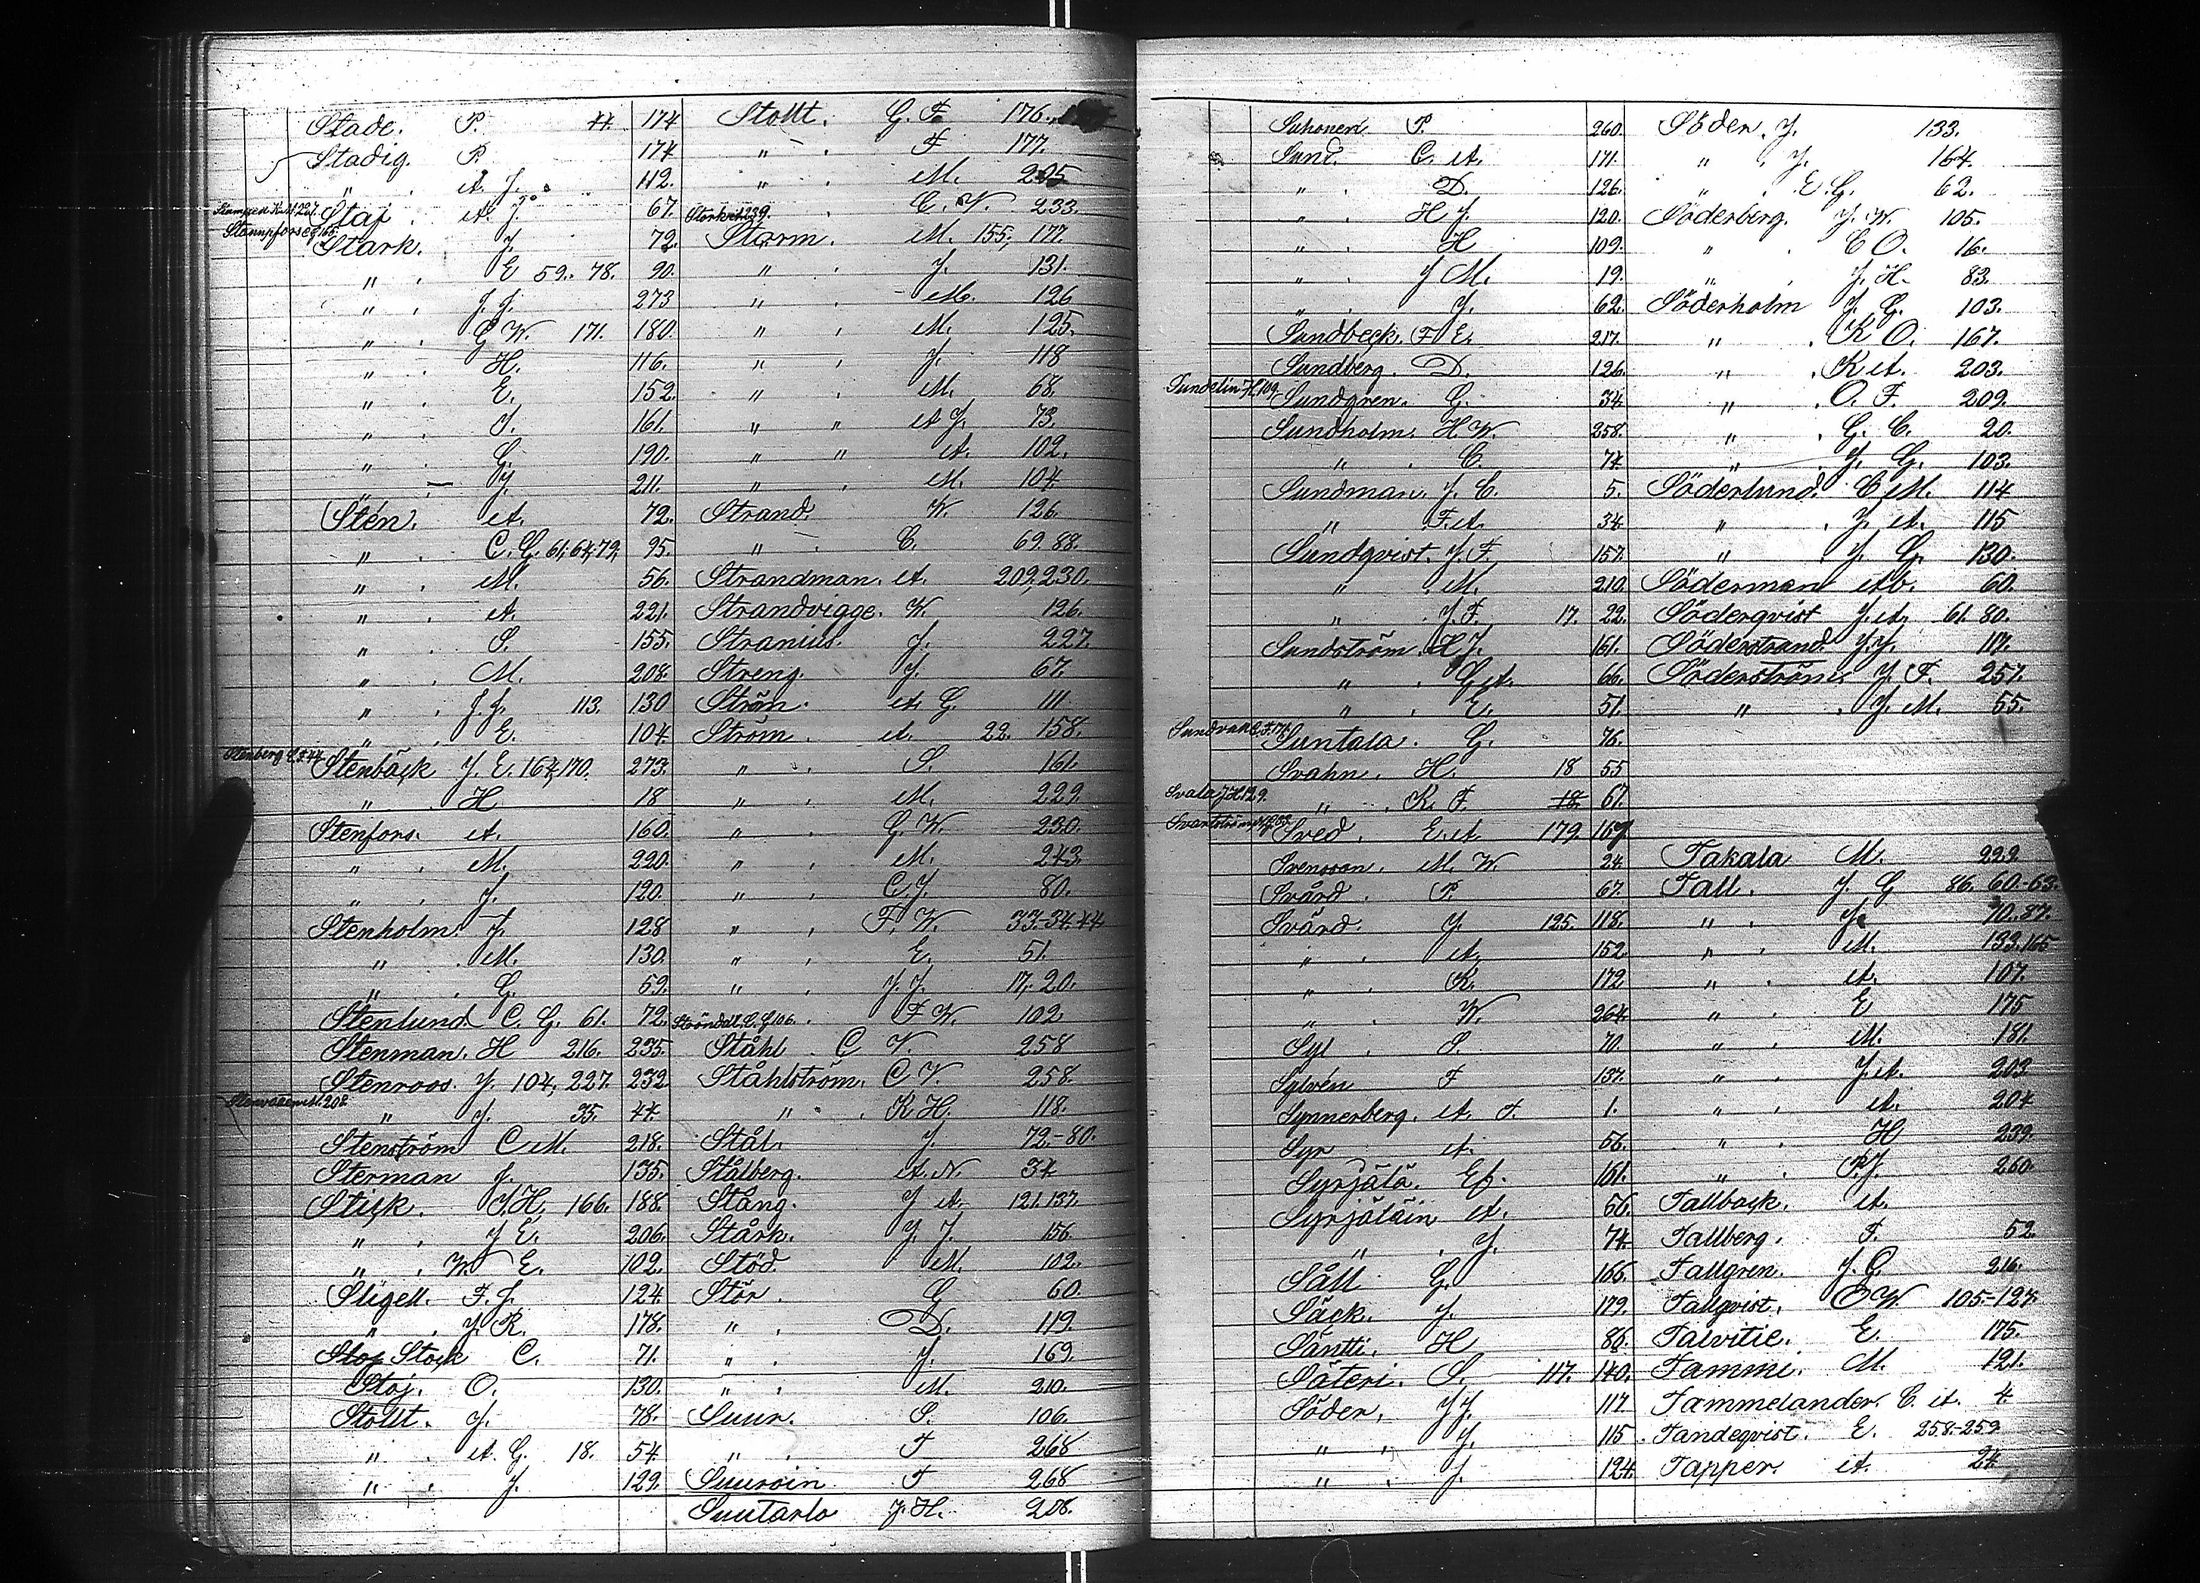 Stade. P. 44. 174
Stadig. P. 174
" . A. J. 112.
Staf . A. J. 67.
Stark. J. 72.
" . E 59. 78. 90.
" . J. J. 273
" . G W. 171. 180.
" . H. 116.
" . E. 152.
" . S. 161.
" . G. 190.
" . J. 211.
Stén. A. 72.
" . C. G. 61, 64, 79, 95.
" . M. 56.
" . A. 221.
" . S. 155.
" . M. 208.
" . J. J. 113. 130
" . E. 104.
Stenbäck J. E. 164, 170. 273.
" . H 18
Stenfors. A. 160.
" . M. 220.
" . J. 120.
Stenholm. J. 128
" . M. 130.
" . G. 59.
Stenlund. C. G. 61. 72.
Stenman. H 216. 235.
Stenroos. J. 104, 227. 232
" J. 35. 44.
Stenström C M. 218.
Sterman J. 135.
Stick. J. H. 166. 188.
" . J E. 206.
" . W. E. 102.
Stigell. F. J. 124.
" . J. R. 178.
Stoj Stock C. 71.
Stoj. O. 130.
Stollt. J. 78.
" . A. G. 18. 54.
" . J. 129.
Stollt. G. F. 176.
" . F 177.
" . M. 205
" . C. V. 233.
Storm. M. 155, 177.
" . J. 131.
" . M. 126
" . M. 125.
" . J. 118
" . M. 68.
" " A J. 73.
" " A. 102.
" . M. 104
Strand. W. 126.
" . C. 69. 88.
Strandman. A. 209, 230.
Strandvigge. W. 126.
Stranius. J. 227.
Streng. J. 67.
Strön. A. G. 111
Ström. A. 22. 158.
" . S. 161.
" . M. 229.
" . G. W. 230.
" . M. 243.
" . C J. 80.
" . F. W. 33-34. 44
" . E. 51.
" . J. J. 17, 20.
Ströndal. C. G 106. . F W. 102
Ståhl . C V. 258
Ståhlström. C V. 258.
" . K. H. 118.
Stål. J. 72.-80.
Stålberg. A. N. 34
Stång. J A. 121. 137.
Stårk. J. J. 156
Stöd. M. 102.
Stör. G 60.
" . D. 119.
" . J. 169.
" . M. 210.
Suur. S. 106.
" . F 268
Suuroin F 268
Suutarla J. H. 208.
Suhonen P. 260.
Sund. C. A. 171.
" . D. 126.
" . H J. 120.
" . H 109.
" . J M. 19.
" . J. 62.
Sundbeck. F E. 217.
Sundberg. D. 126.
Sundelin J H. 109.
Sundgren. G. 34.
Sundholm. H. W. 258.
" . C. 74
Sundman. J. C. 5.
" . F. A. 34.
Sundqvist. J. F. 157.
" . M. 210.
" . J. F. 17. 22.
Sundström. J. 161.
" . G A. 66.
" . E. 51.
Suntala. G. 76.
Svahn. H. 18 55
Svala J H 129.
" . K. F. 18. 67.
Sved. E. A. 179
Svensson. M. W. 24.
Svärd. P. 67.
Svärd. J. 125. 118.
" . A. 152.
" . K. 172
" . W. 264.
Syl . S. 70.
Sylvén F 137.
Synnerberg. A. F. 1.
Syr A. 56.
Syrjälä. Ef. 161.
Syrjäläin A. 56.
" . J. 74.
Såll G. 166.
Säck. J. 179.
Säntti. H 86.
Säteri. S. 117. 140.
Söder. J J. 117.
" . J. 115.
" . J. 124.
Söder. J. 133.
" . J. 164.
" . E. G. 62.
Söderberg. J. W. 105.
" . C O. 16.
" . J. H. 83.
Söderholm J. G. 103.
" . K O. 167.
" . K A. 203.
" . O. F. 209.
" . G. C. 20.
" . J. G. 103.
Söderlund. C M. 114
" . J. A. 115
" . J. G. 130.
Söderman 60.
Söderqvist J. A. 61. 80.
Söderstrand. J. J. 117.
Söderström. J. F. 257.
" . J. M. 55.
Takala M. 222
Tall. J. G 86. 60.-63.
" . J. 70. 87.
" . M. 133. 165
" . A. 107.
" . E 175
" . M. 181.
" . J. A. 203
" . A. 204
" . H 239.
" . P. J. 260.
Tallback. A.
Tallberg. F. 52.
Tallgren. J. G. 216.
Tallqvist. E W. 105.-127.
Talvitie. E. 175.
Tammi. M. 121.
Tammelander. C. A. 4.
Tandeqvist. E. 258.-259
Tapper. A. 24.